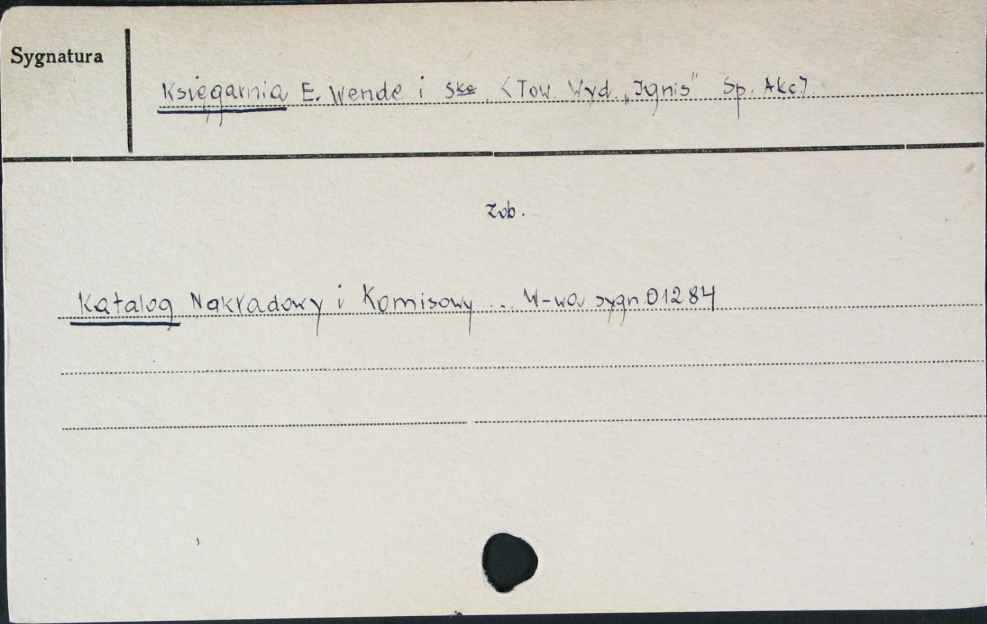 Sygnatura
Księgarnia E. Wende i Ska <Tow. Wyd. „Ignis" Sp. Akc>
Zob.
Katalog Nakładowy i Komisowy ... W-wa sygn. 01284